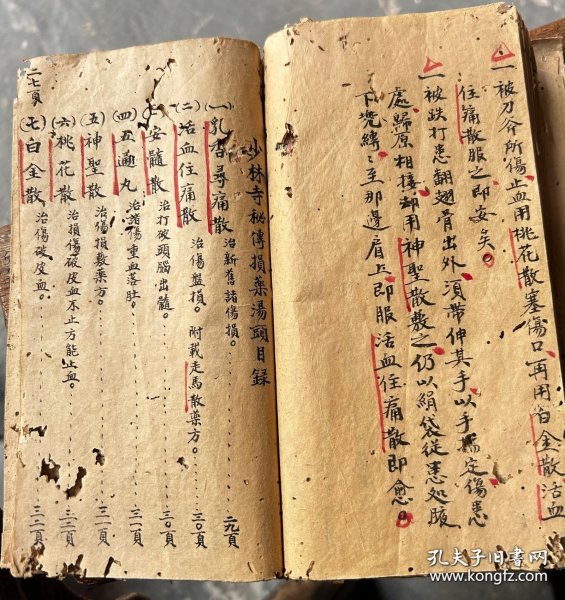 一被刀斧所傷止血用桃花散塞傷口再用白金散活血
住痛散服之即安矣。
一被跌打患翻翅骨出外須帶伸其手以手揣定傷患
處歸原相接却用神聖散敷之仍以絹袋從患処腋
下絻縛〻至那邊肩上即服活血住痛散即愈。
少林寺秘傳損藥湯頭目錄
(一)乳香尋痛散 治新舊諸傷損。 二九頁
(二)活血住痛散 治傷盤損。附載走馬散藥方。 三〇頁
安髓散 治打破頭腦出髓 三〇頁
(四)五通丸 治諸傷重血落肚。 三一頁
(五)神聖散 治傷損敷藥方。 三一頁
(六)桃花散 治損傷破皮血不止方能止血。 三二頁
(七)白金散 治傷破皮血。 三二頁
二七頁
孔夫子旧書网
www.kongfz.com